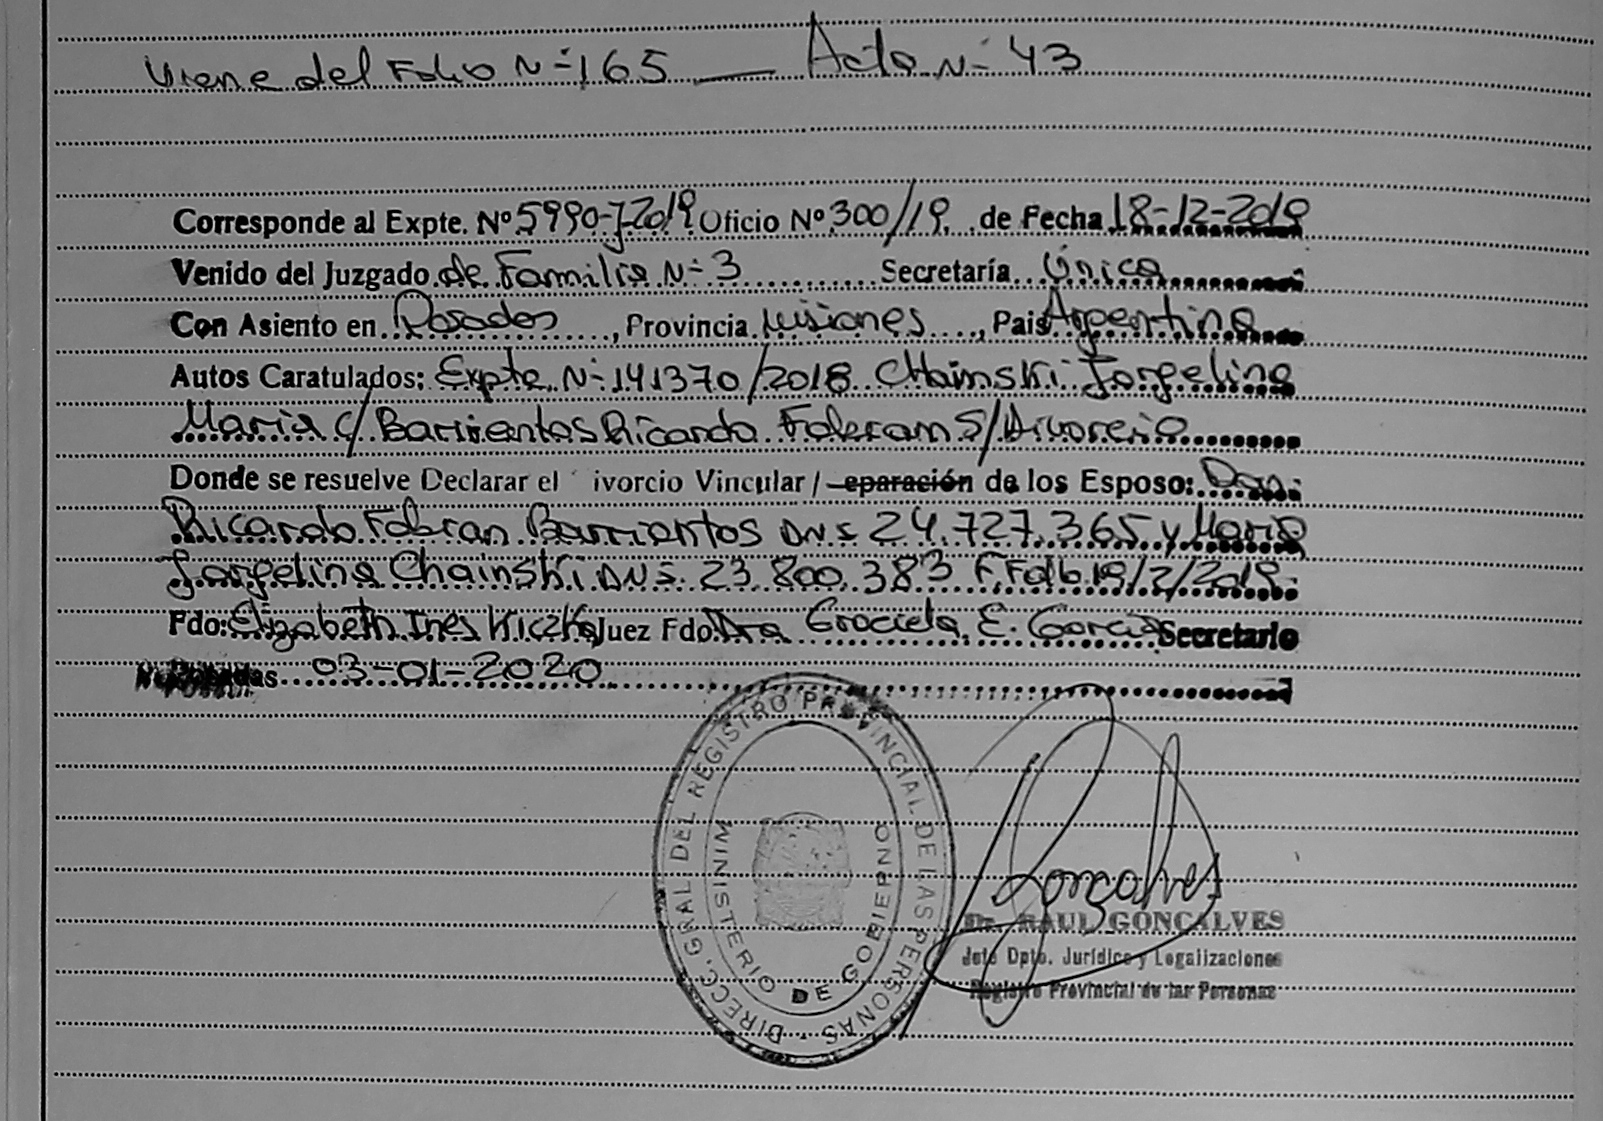 Viene del Folio Nº 165 — Acta Nº 43
Corresponde al Expte. Nº 5990-J-2019 Oficio Nº 300/19. de Fecha 18-12-2019
Venido del Juzgado de Familia Nº 3 Secretaría Única
Con Asiento en Posadas, Provincia Misiones, Pais Argentina
Autos Caratulados: Expte. Nº 141370/2018 Chainski Jorgelina
Maria c/ Barrientos Ricardo Fabran S/ Divorcio
Donde se resuelve Declarar el ivorcio Vincular / eparación de los Esposo: Don:
Ricardo Fabran Barrientos DNI 24.727.365 y Maria
Jorgelina Chainski DNI. 23.800.383 19/2/2019.
Fdo: Elizabeth Ines Kiczka Juez Fdo. Dra Graciela E. Garcia Secretario
03-01-2020
DIRECC. GRAL DEL REGISTRO PROVINCIAL DE LAS PERSONAS
MINISTERIO DE GOBIERNO
Gonçalves
Dr. RAUL GONÇALVES
Jefe Dpto. Jurídico y Legalizaciones
Registro Provincial de las Personas